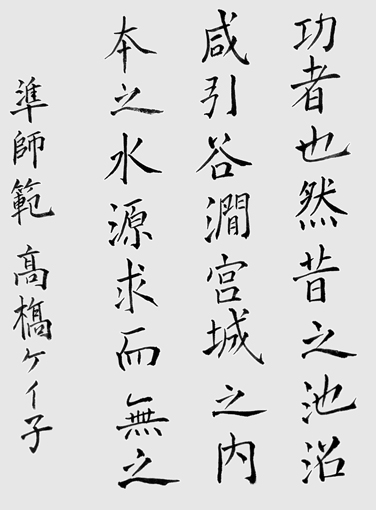 功者也然昔之池沼
咸引谷澗宮城之内
本之水源求而無之
準師範 高橋ケイ子